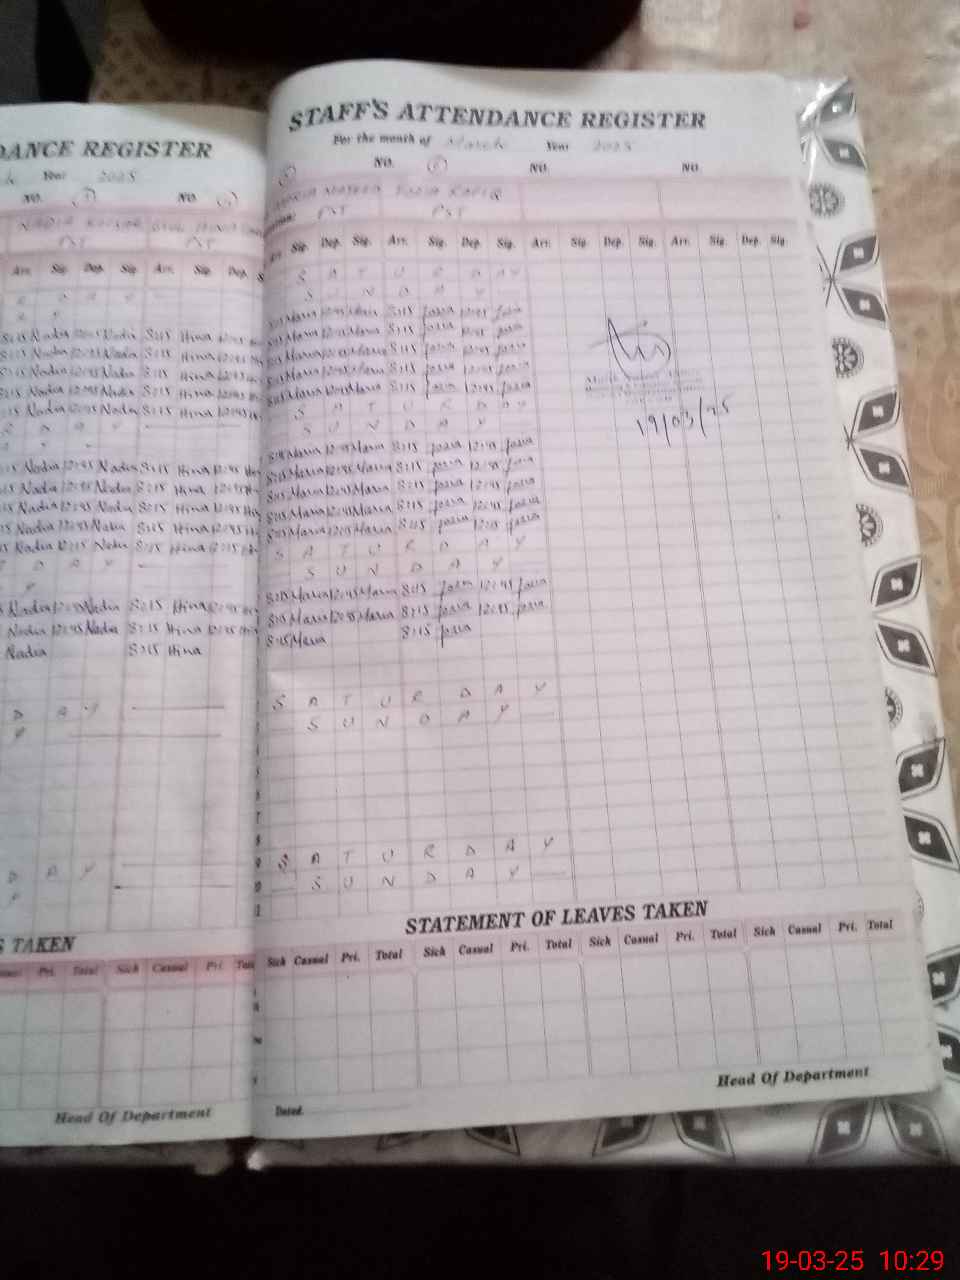 DANCE REGISTER
Year 2025
NO. NO.
PST PST
Arr. Sig. Dep. Sig. Arr. Sig. Dep. S
8:15 Nadia 12:45 Nadia 8:15 Hina 12:45
8:15 Nadia 12:45 Nadia 8:15 Hina 12:45
8:15 Nadia 12:45 Nadia 8:15 Hina 12:45
8:15 Nadia 12:45 Nadia 8:15 Hina 12:45
:15 Nadia 12:45 Nadia 8:15 Hina 12:45
R D A Y
:15 Nadia 12:45 Nadia 8:15 Hina 12:45
15 Nadia 12:45 Nadia 8:15 Hina 12:45
15 Nadia 12:45 Nadia 8:15 Hina 12:45
15 Nadia 12:45 Nadia 8:15 Hina 12:45
15 Nadia 12:45 Nadia 8:15 Hina 12:45
D A Y
Y
Nadia 12:45 Nadia 8:15 Hina 12:45
Nadia 12:45 Nadia 8:15 Hina 12:45
Nadia 8:15 Hina
D A Y
Y
D A Y
S TAKEN
Pri. Total Sick Casual Pri.
Head Of Department
STAFF'S ATTENDANCE REGISTER
For the month of March Year 2025
NO. NO. NO.
PST PST
Arr. Sig. Dep. Sig. Arr. Sig. Dep. Sig. Arr. Sig. Dep. Sig. Arr. Sig. Dep. Sig.
S A T U R D A Y
S U N D A Y
8:15 Maria 12:45 Maria 8:15 fozia 12:45 fozia
8:15 Maria 12:45 Maria 8:15 fozia 12:45 fozia
8:15 Maria 12:45 Maria 8:15 fozia 12:45 fozia
8:15 Maria 12:45 Maria 8:15 fozia 12:45 fozia
8:15 Maria 12:45 Maria 8:15 fozia 12:45 fozia
S A T U R D A Y
S U N D A Y
19/03/25
8:15 Maria 12:45 Maria 8:15 fozia 12:45 fozia
8:15 Maria 12:45 Maria 8:15 fozia 12:45 fozia
8:15 Maria 12:45 Maria 8:15 fozia 12:45 fozia
8:15 Maria 12:45 Maria 8:15 fozia 12:45 fozia
8:15 Maria 12:45 Maria 8:15 fozia 12:45 fozia
S A T U R D A Y
S U N D A Y
8:15 Maria 12:45 Maria 8:15 fozia 12:45 fozia
8:15 Maria 12:45 Maria 8:15 fozia 12:45 fozia
8:15 Maria 8:15 fozia
S A T U R D A Y
S U N D A Y
S A T U R D A Y
S U N D A Y
STATEMENT OF LEAVES TAKEN
Sick Casual Pri. Total Sick Casual Pri. Total Sick Casual Pri. Total Sick Casual Pri. Total
Head Of Department
Dated.
19-03-25 10:29